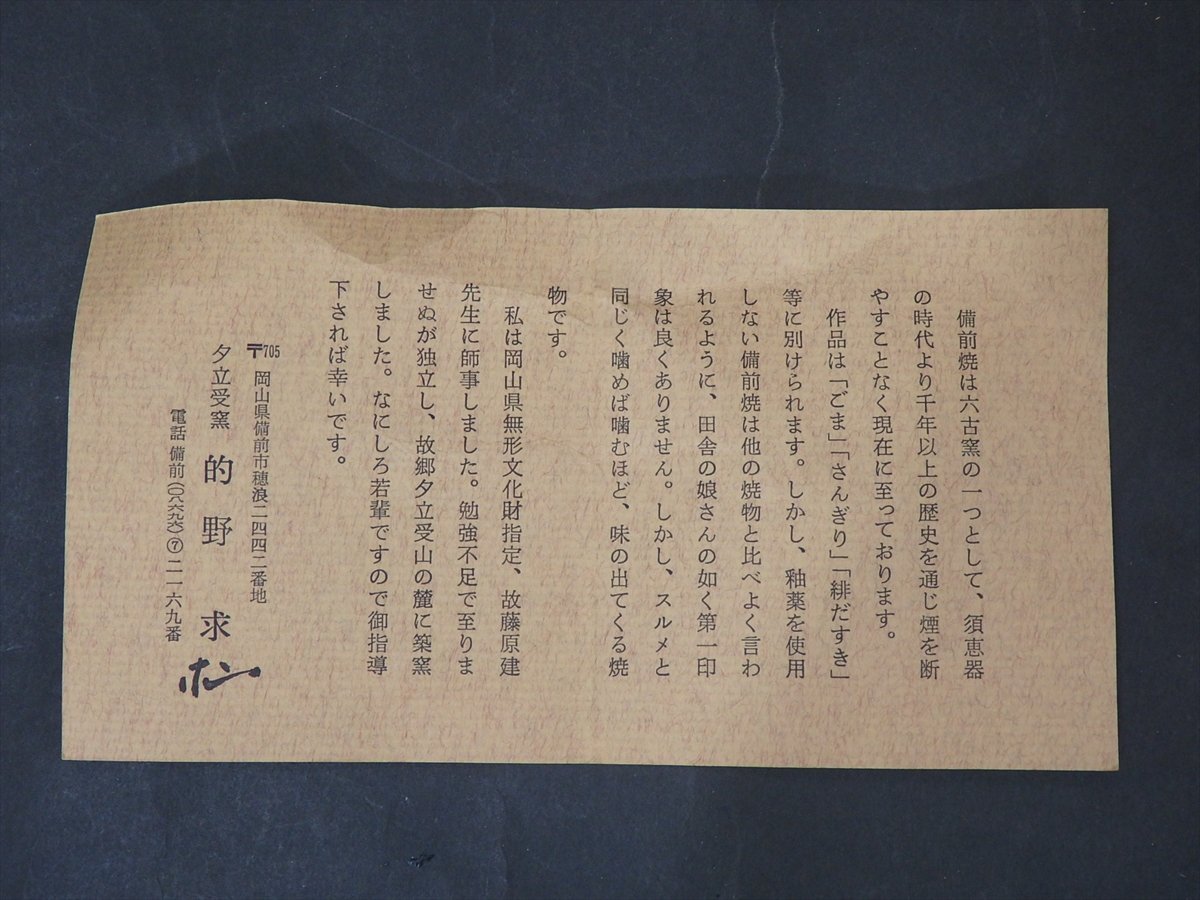 備前焼は六古窯の一つとして、須恵器
の時代より千年以上の歴史を通じ煙を断
やすことなく現在に至っております。
作品は「ごま」「さんぎり」「緋だすき」
等に別けられます。しかし、釉薬を使用
しない備前焼は他の焼物と比べよく言わ
れるように、田舎の娘さんの如く第一印
象は良くありません。しかし、スルメと
同じく噛めば噛むほど、味の出てくる焼
物です。
私は岡山県無形文化財指定、故藤原建
先生に師事しました。勉強不足で至りま
せぬが独立し、故郷夕立受山の麓に築窯
しました。なにしろ若輩ですので御指導
下されば幸いです。
〒705 岡山県備前市穂浪二四四二番地
夕立受窯 的野求
電話 備前(〇八六九六)⑦二一六九番